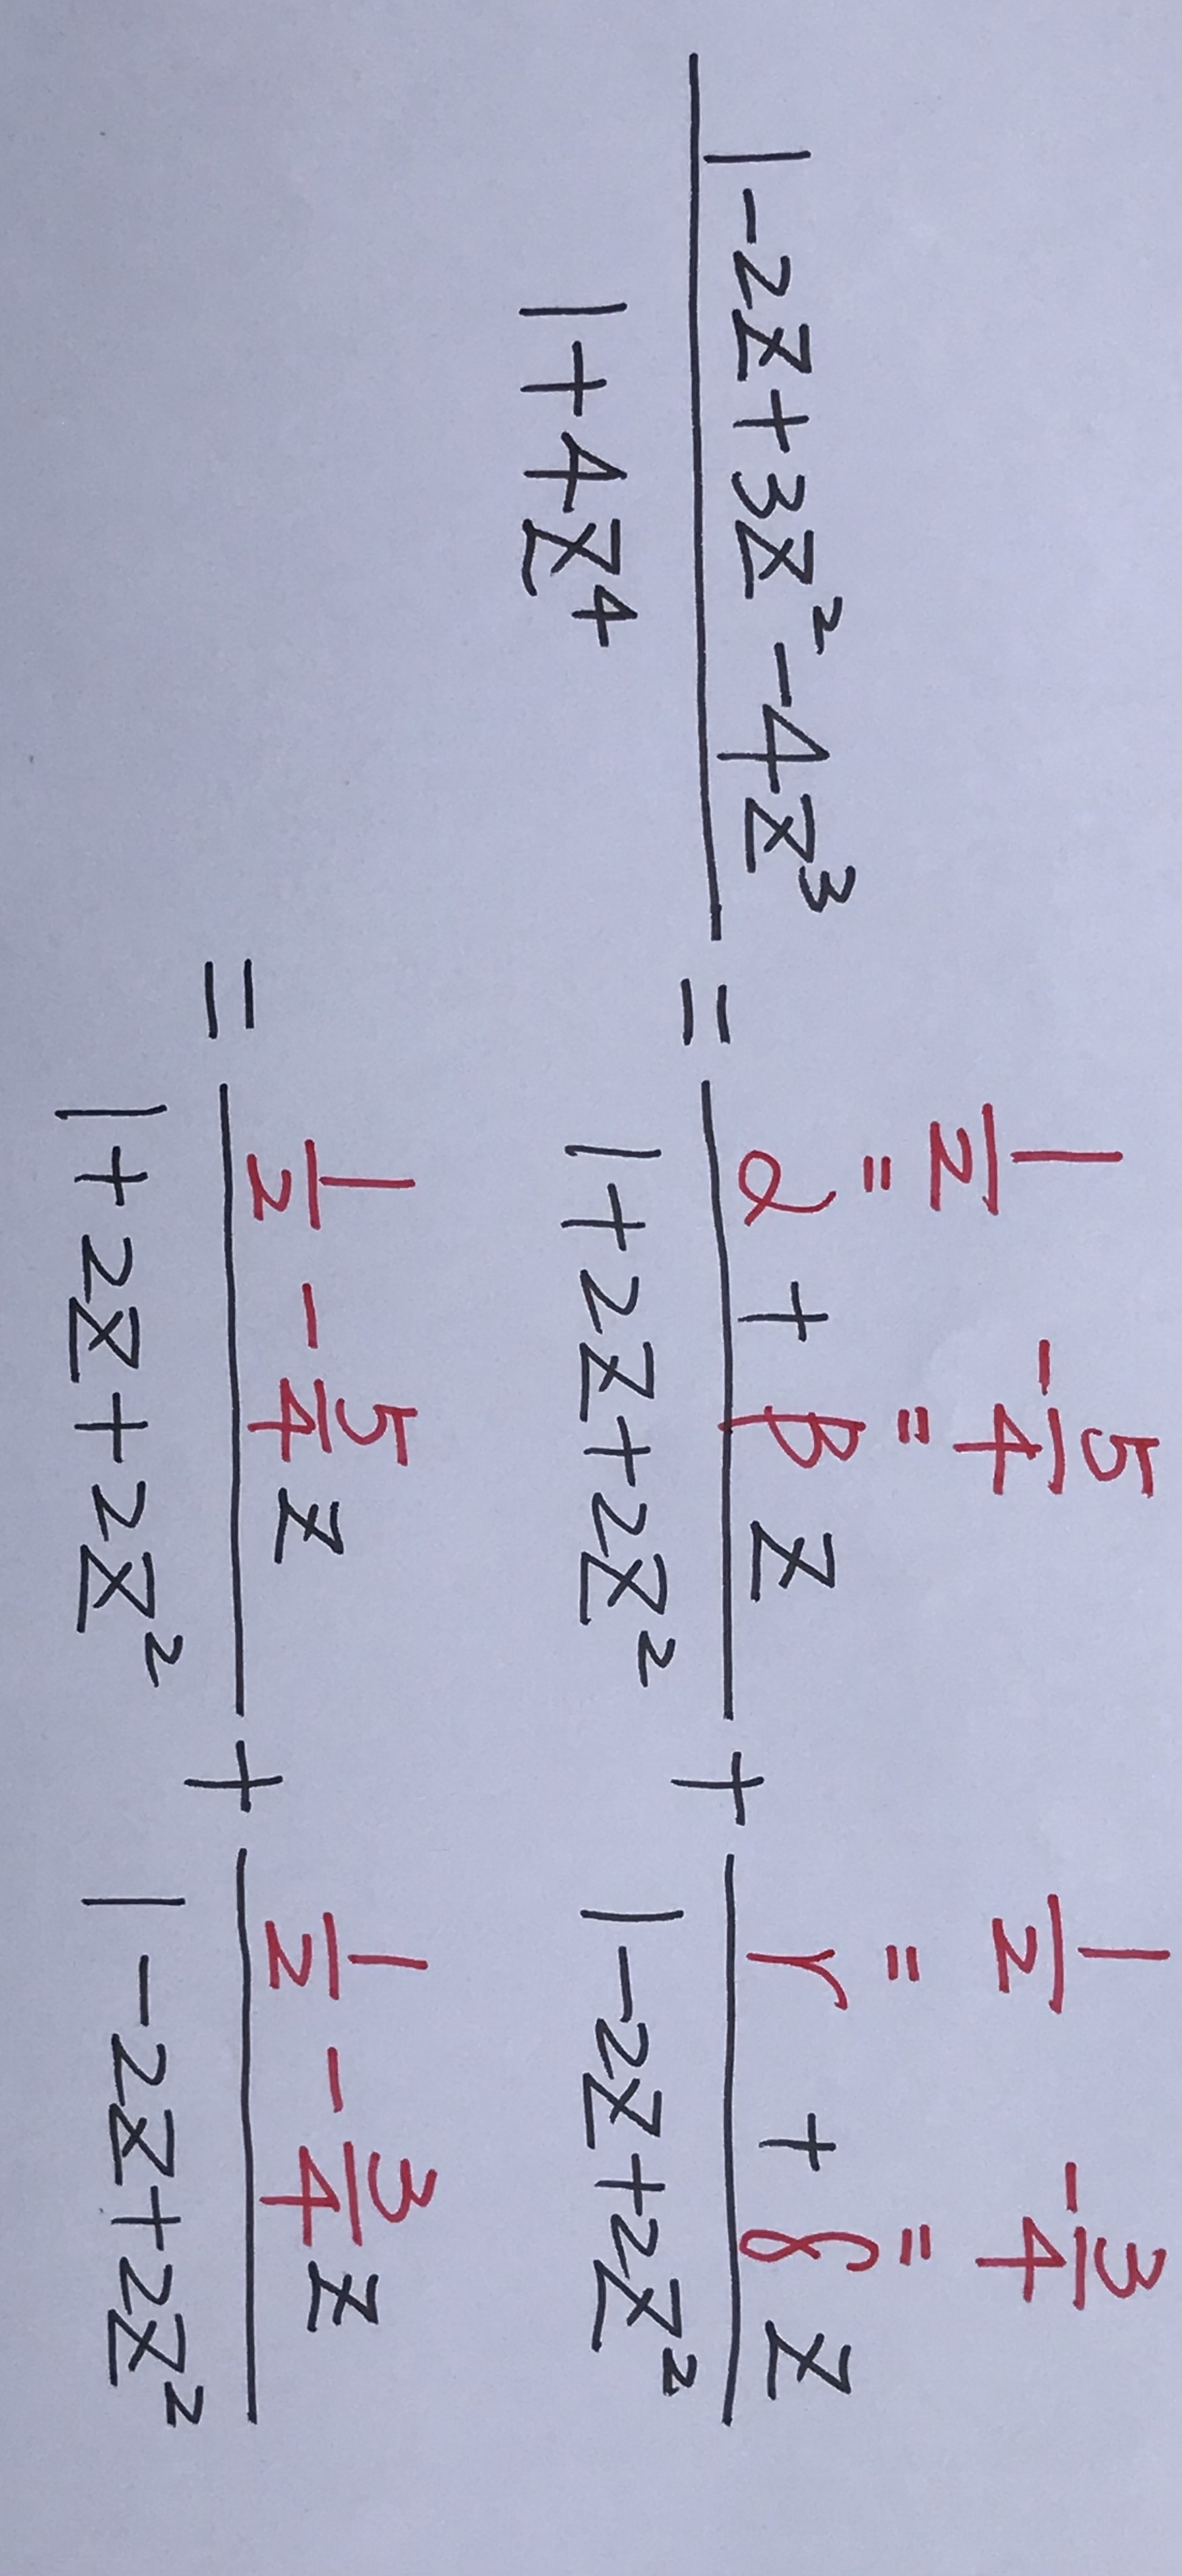 1/2 -5/4 1/2 -3/4
= = = =
(1-2z+3z²-4z³)/(1+4z⁴) = (α + βz)/(1+2z+2z²) + (γ + δz)/(1-2z+2z²)
= (1/2 - 5/4 z)/(1+2z+2z²) + (1/2 - 3/4 z)/(1-2z+2z²)